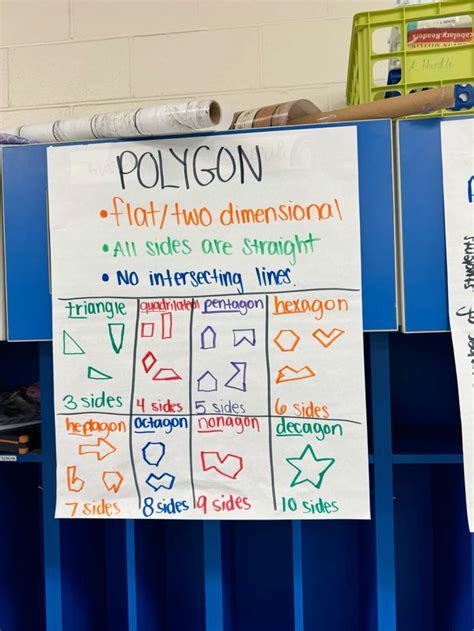 cabulary Readers
A Hurdle
POLYGON
• flat/two dimensional
• All sides are straight
• No intersecting lines.
triangle quadrilateral pentagon hexagon
3 sides 4 sides 5 sides 6 sides
heptagon octagon nonagon decagon
7 sides 8 sides 9 sides 10 sides